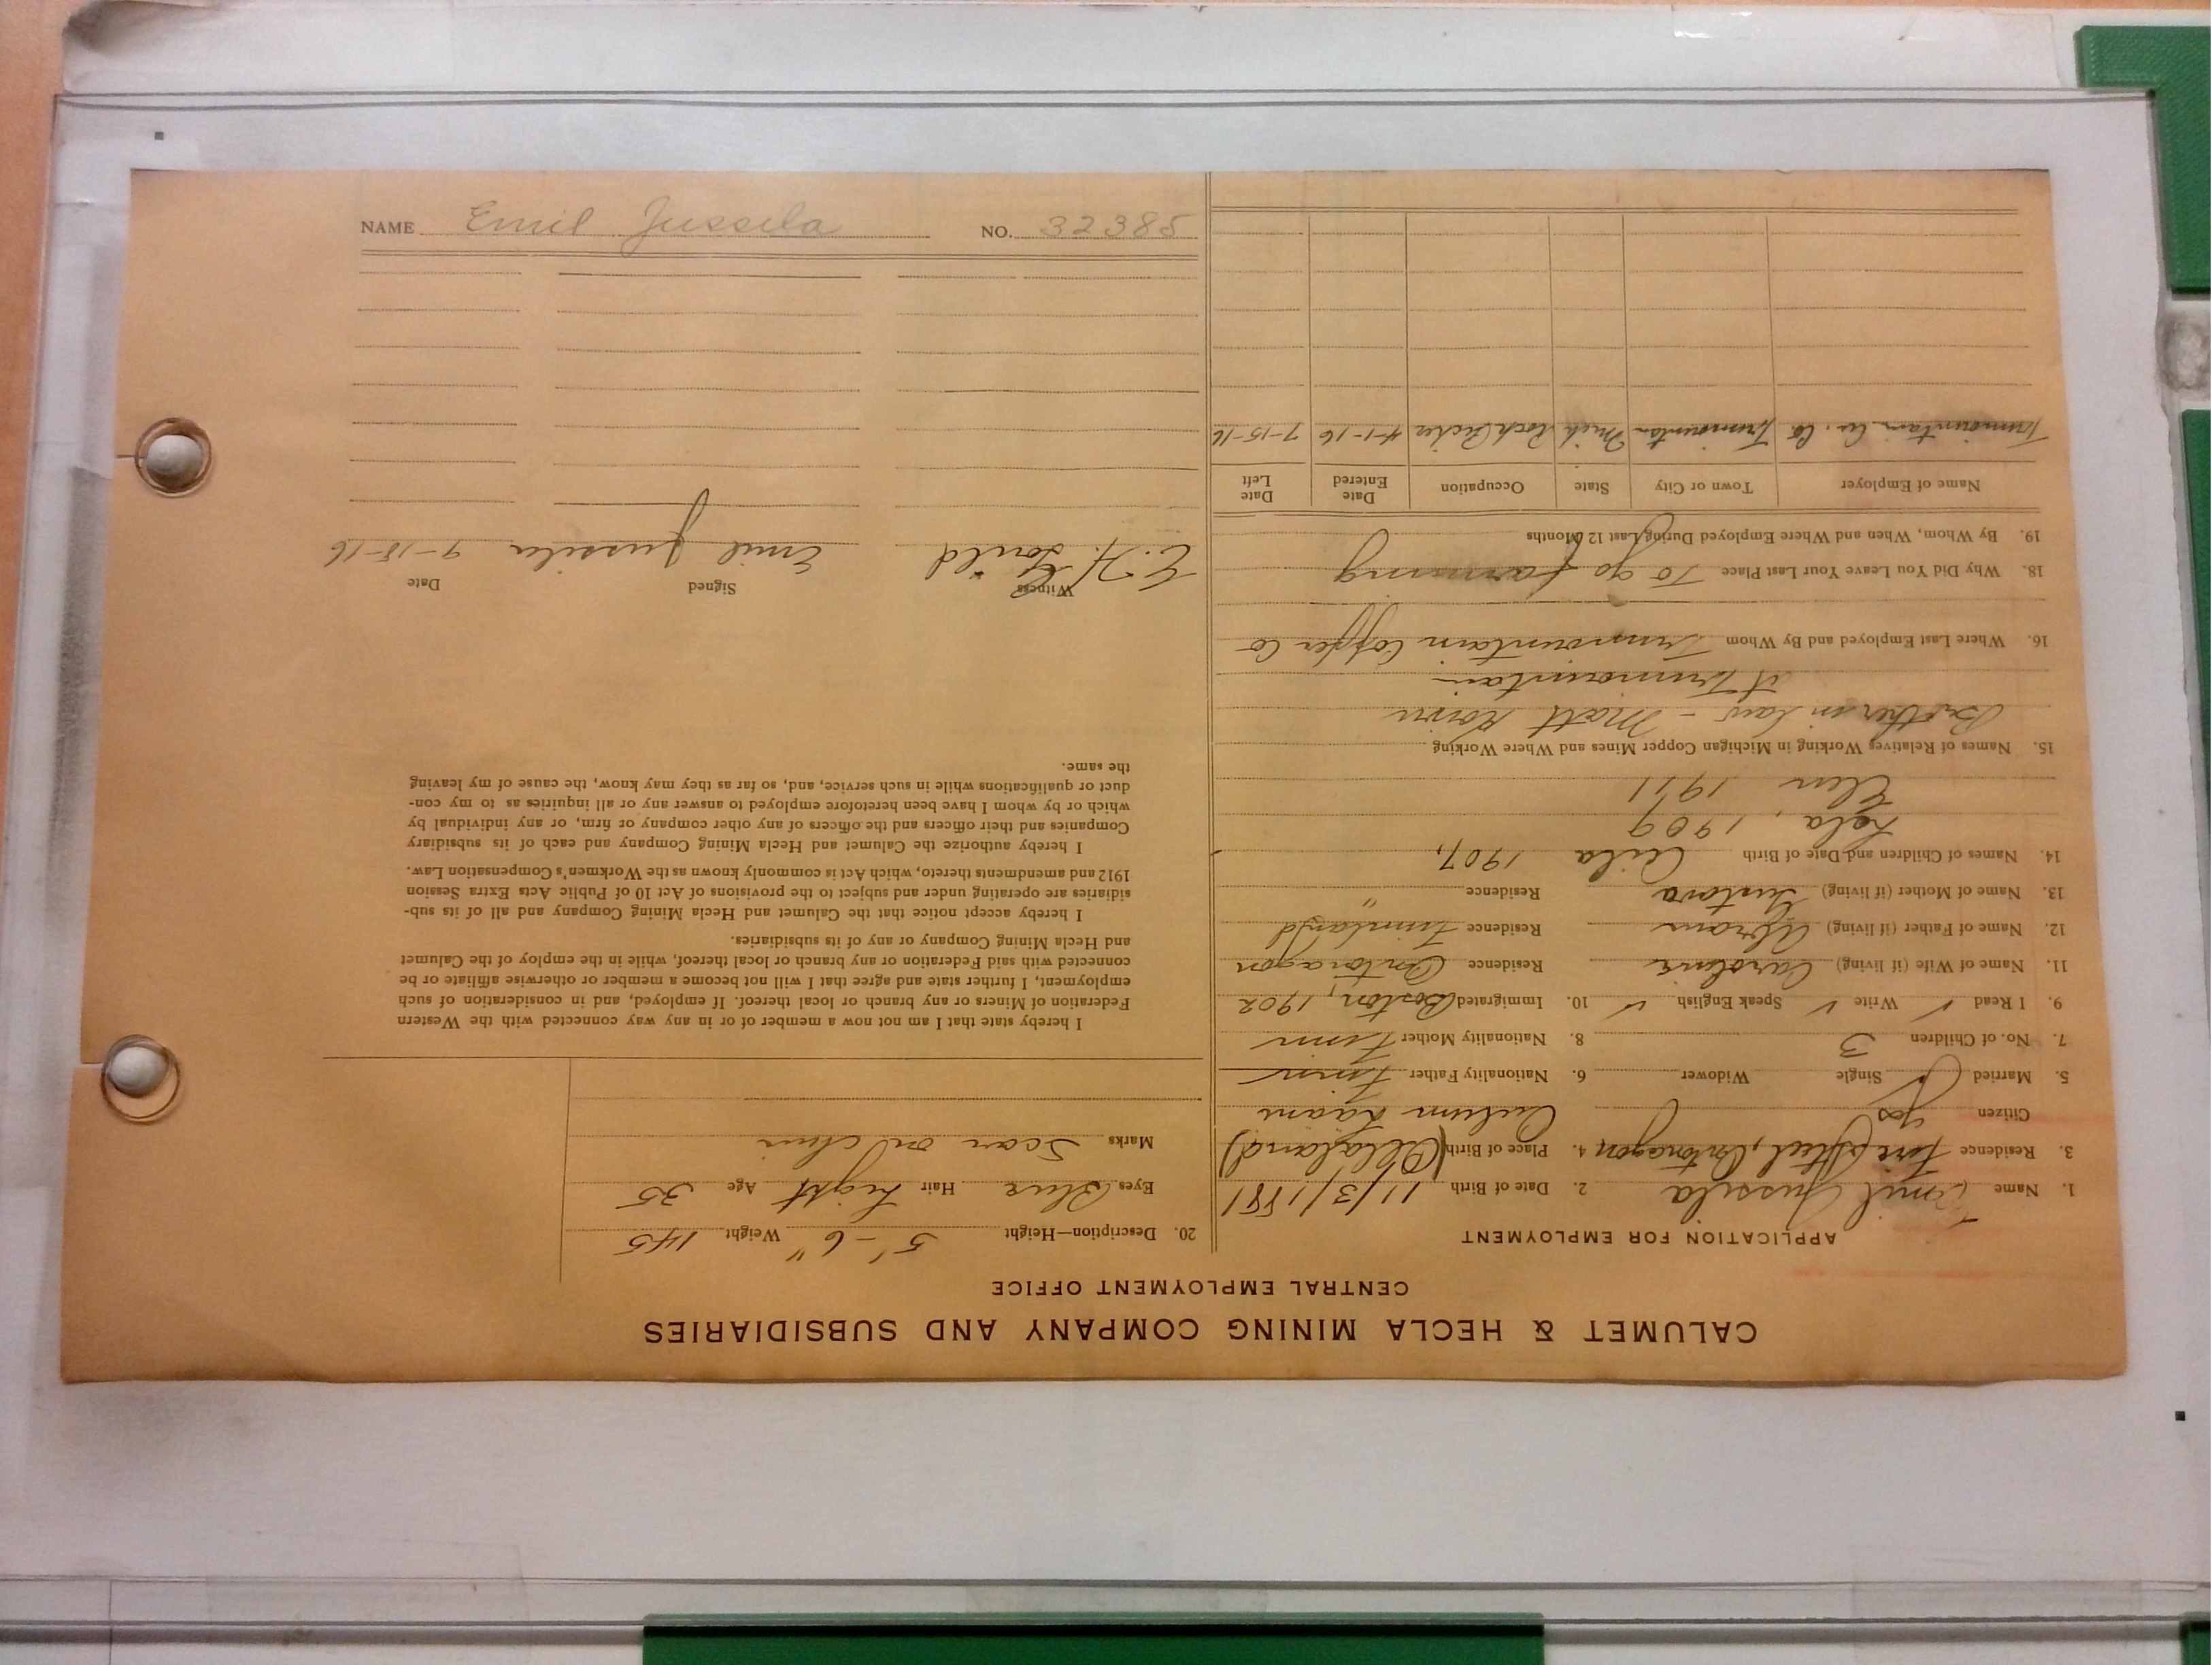 CALUMET & HECLA MINING COMPANY AND SUBSIDIARIES
CENTRAL EMPLOYMENT OFFICE
APPLICATION FOR EMPLOYMENT
1. Name Emil Jussila 2. Date of Birth 11/3/1881
3. Residence Ontonagon 4. Place of Birth
Citizen Yes
5. Married Single Widower 6. Nationality Father Finn
7. No. of Children 3 8. Nationality Mother Finn
9. I Read ✓ Write ✓ Speak English ✓ 10. Immigrated Boston, 1902
11. Name of Wife (if living) Caroline Residence Ontonagon
12. Name of Father (if living) Abram Residence Finnland
13. Name of Mother (if living) Gustava Residence "
14. Names of Children and Date of Birth 1907,
1909
Elen 1911
15. Names of Relatives Working in Michigan Copper Mines and Where Working
Brother in law - Matt
at Trimountain
16. Where Last Employed and By Whom Trimountain Copper Co
18. Why Did You Leave Your Last Place To go farming
19. By Whom, When and Where Employed During Last 12 Months
Name of Employer Town or City State Occupation Date Entered Date Left
Trimountain Cu. Co Trimountain Mich Rock Picker 4-1-16 7-15-16
20. Description—Height 5'-6" Weight 145
Eyes Blue Hair Light Age 35
Marks Scar on chin
I hereby state that I am not now a member of or in any way connected with the Western
Federation of Miners or any branch or local thereof. If employed, and in consideration of such
employment, I further state and agree that I will not become a member or otherwise affiliate or be
connected with said Federation or any branch or local thereof, while in the employ of the Calumet
and Hecla Mining Company or any of its subsidiaries.
I hereby accept notice that the Calumet and Hecla Mining Company and all of its sub-
sidiaries are operating under and subject to the provisions of Act 10 of Public Acts Extra Session
1912 and amendments thereto, which Act is commonly known as the Workmen's Compensation Law.
I hereby authorize the Calumet and Hecla Mining Company and each of its subsidiary
Companies and their officers and the officers of any other company or firm, or any individual by
which or by whom I have been heretofore employed to answer any or all inquiries as to my con-
duct or qualifications while in such service, and, so far as they may know, the cause of my leaving
the same.
Witness Signed Date
E. H. Gould Emil Jussila 9-18-16
NAME Emil Jussila NO. 32385